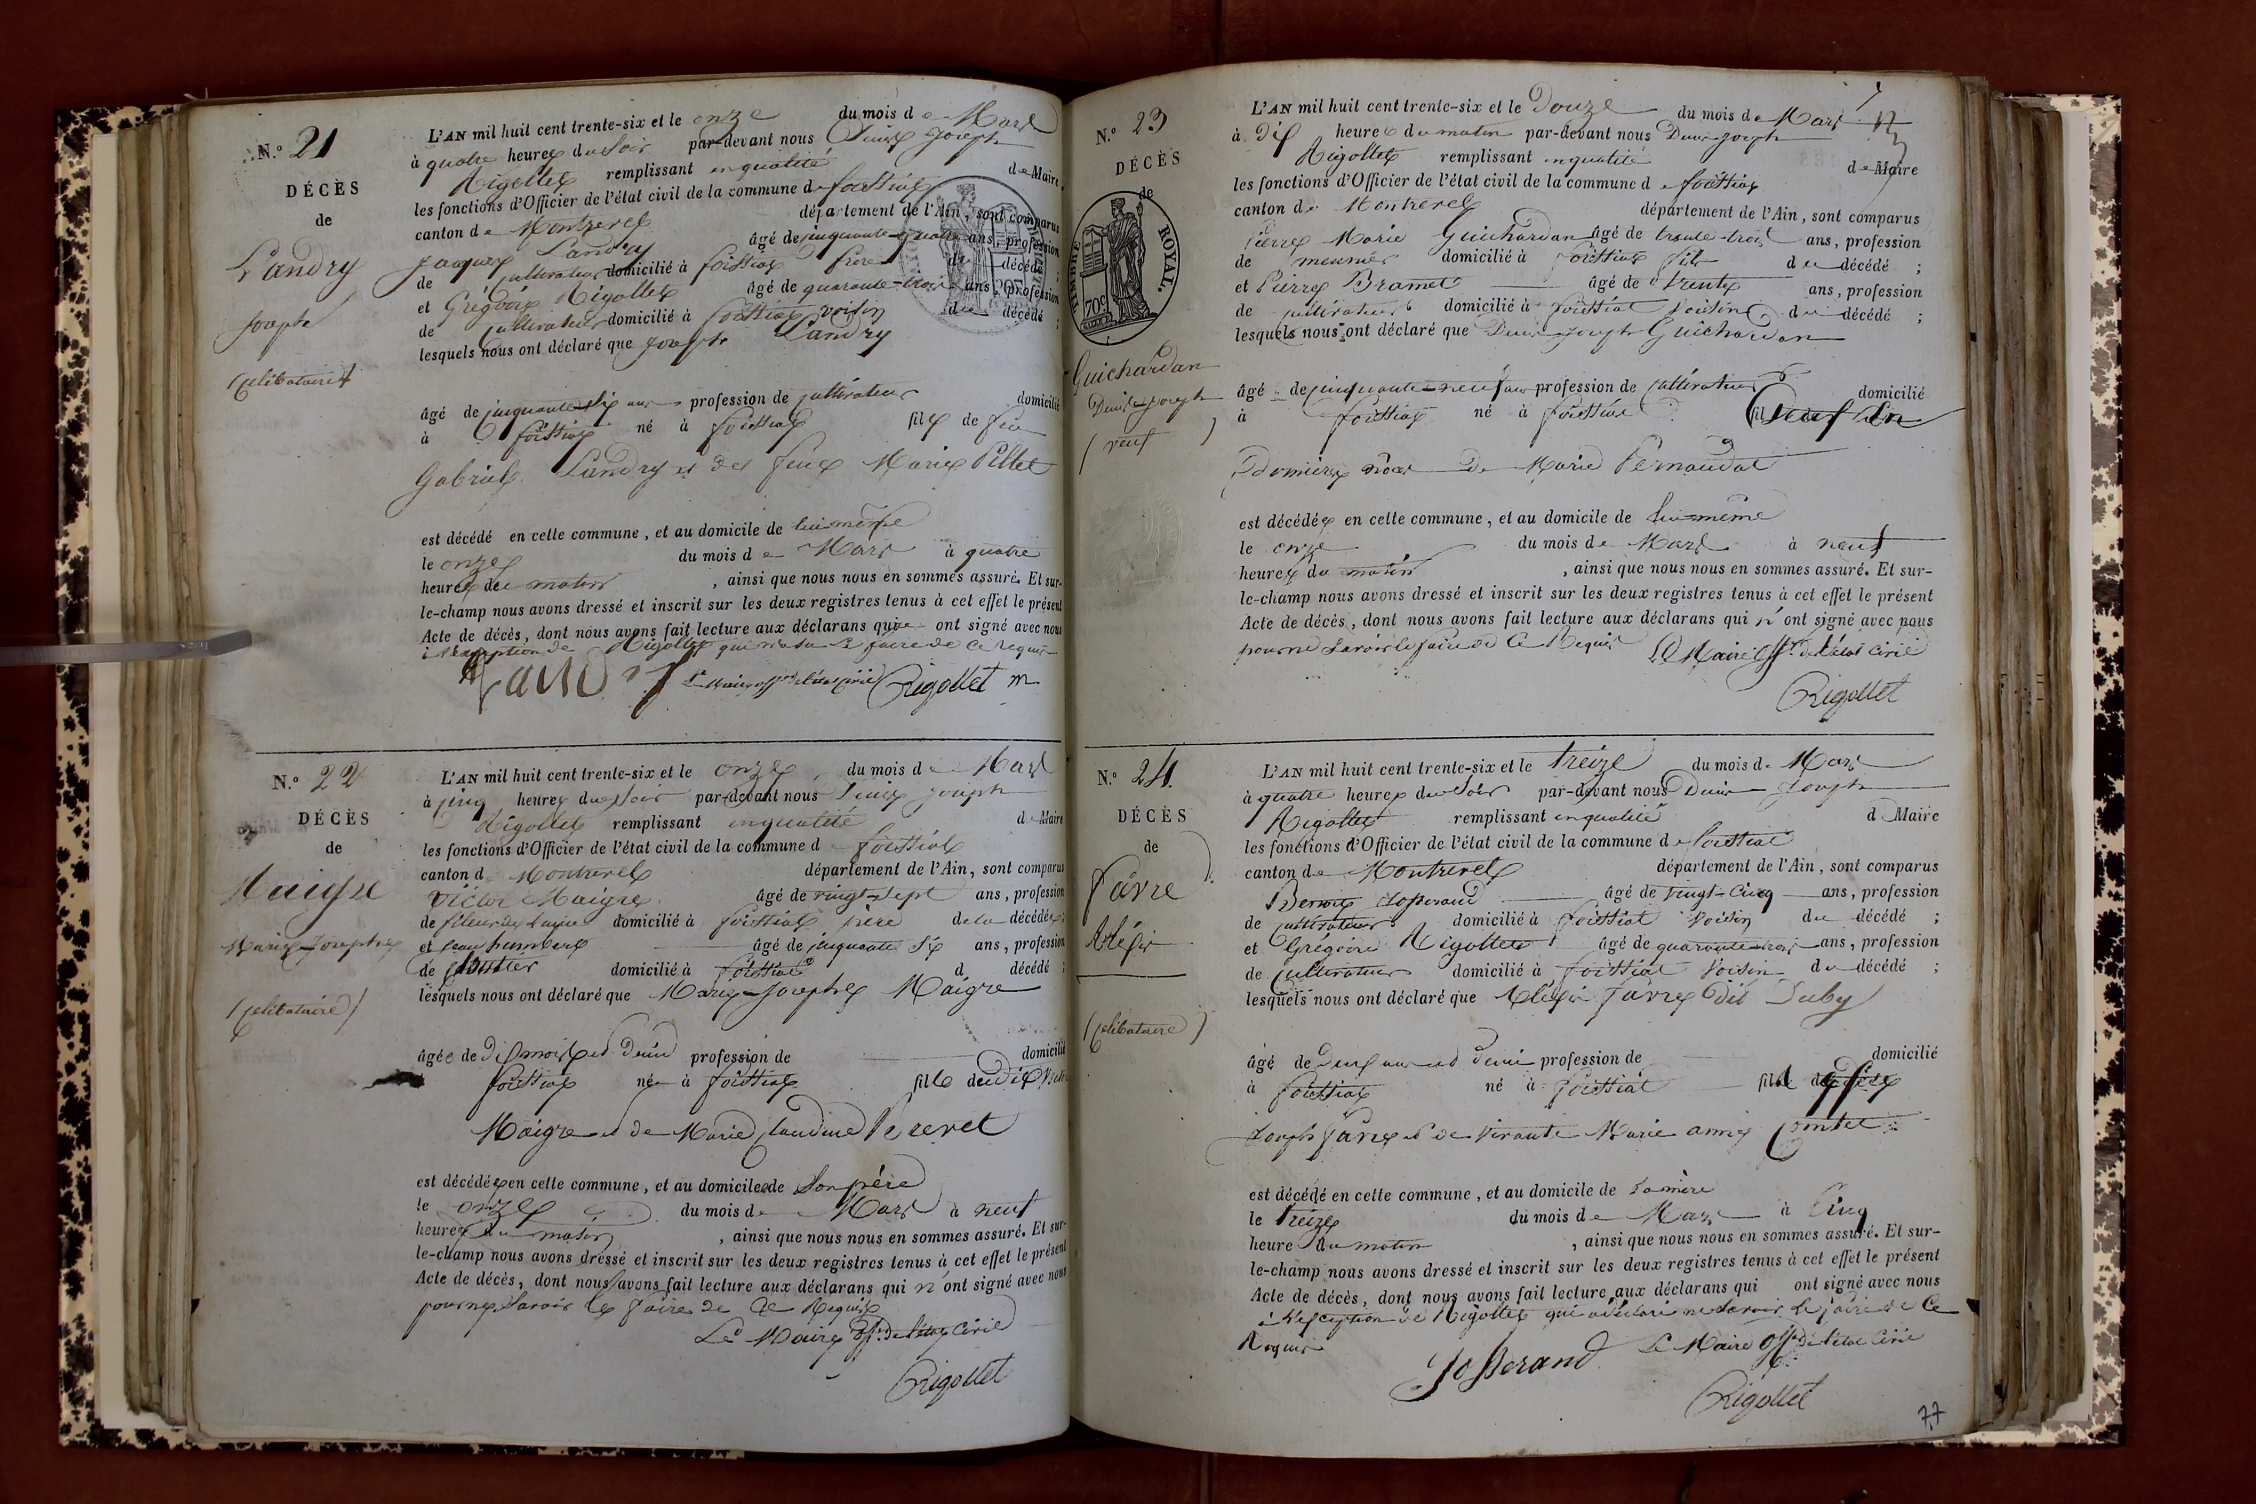 N.° 21
DÉCÈS
de
Landry
Joseph
(célibataire)
L'AN mil huit cent trente-six et le onze du mois de Mars
à quatre heures du soir par-devant nous Denis Joseph
Rigollet remplissant en qualité de Maire
les fonctions d'Officier de l'état civil de la commune de foissiat
canton de Montrevel département de l'Ain, sont comparus
Jacques Landry âgé de cinquante-quatre ans, profession
de cultivateur domicilié à foissiat frère du décédé ;
et Grégoire Rigollet âgé de quarante-trois ans, profession
de cultivateur domicilié à foissiat voisin du décédé ;
lesquels nous ont déclaré que Joseph Landry
âgé de cinquante six ans profession de cultivateur domicilié
à foissiat né à foissiat fils de feu
Gabriel Landry et de feue Marie Pillet
est décédé en cette commune, et au domicile de lui même
le onze du mois de Mars à quatre
heures du matin, ainsi que nous nous en sommes assuré. Et sur-
le-champ nous avons dressé et inscrit sur les deux registres tenus à cet effet le présent
Acte de décès, dont nous avons fait lecture aux déclarans qui ont signé avec nous
à l'exception de Rigollet qui n'a su le faire de ce requis
Landry Le Maire off. de l'état civil Rigollet m
N.° 22
DÉCÈS
de
Maigre
Marie Josephe
(célibataire)
L'AN mil huit cent trente-six et le onze du mois de Mars
à cinq heures du soir par-devant nous Denis Joseph
Rigollet remplissant en qualité de Maire
les fonctions d'Officier de l'état civil de la commune d foissiat
canton de Montrevel département de l'Ain, sont comparus
Victor Maigre âgé de vingt-sept ans, profession
de fileur de laine domicilié à foissiat père de la décédée ;
et Jean humbert âgé de cinquante six ans, profession
de domicilié à foissiat d décédé ;
lesquels nous ont déclaré que Marie-Josephe Maigre
âgée de dix mois et demi profession de domicilié
foissiat née à foissiat fille dudit Victor
Maigre et de Marie Claudine Perevet
est décédée en cette commune, et au domicile de Son père
le onze du mois de Mars à neuf
heures du matin, ainsi que nous nous en sommes assuré. Et sur-
le-champ nous avons dressé et inscrit sur les deux registres tenus à cet effet le présent
Acte de décès, dont nous avons fait lecture aux déclarans qui n'ont signé avec nous
pour ne Savoir le faire de Ce Requis
Le Maire off. de l'état Civil
Rigollet
N.° 23
DÉCÈS
de
TIMBRE ROYAL.
70c
Guichardan
Denis-Joseph
(veuf)
L'AN mil huit cent trente-six et le Douze du mois de Mars
à Dix heures du matin par-devant nous Denis Joseph
Rigollet remplissant en qualité de Maire
les fonctions d'Officier de l'état civil de la commune de foissiat
canton de Montrevel département de l'Ain, sont comparus
Pierre Marie Guichardan âgé de trente-trois ans, profession
de meunier domicilié à foissiat fils du décédé ;
et Pierre Bramet âgé de trente ans, profession
de cultivateur domicilié à foissiat Voisin du décédé ;
lesquels nous ont déclaré que Denis Joseph Guichardan
âgé de cinquante-neuf ans profession de cultivateur domicilié
à foissiat né à foissiat fils Veuf En
Dernières nôces De Marie Pernaudat
est décédé en cette commune, et au domicile de lui-même
le onze du mois de Mars à neuf
heures du matin, ainsi que nous nous en sommes assuré. Et sur-
le-champ nous avons dressé et inscrit sur les deux registres tenus à cet effet le présent
Acte de décès, dont nous avons fait lecture aux déclarans qui n'ont signé avec nous
pour ne Savoir le faire de Ce Requis Le Maire Off. de l'état Civil
Rigollet
N.° 24
DÉCÈS
de
Favre
Aléxis
(célibataire)
L'AN mil huit cent trente-six et le treize du mois de Mars
à quatre heures du Soir par-devant nous Denis Joseph
Rigollet remplissant en qualité d Maire
les fonctions d'Officier de l'état civil de la commune de foissiat
canton de Montrevel département de l'Ain, sont comparus
Benoit Josserand âgé de vingt-Cinq ans, profession
de cultivateur domicilié à foissiat Voisin du décédé ;
et Grégoire Rigollet âgé de quarante-trois ans, profession
de Cultivateur domicilié à foissiat Voisin du décédé ;
lesquels nous ont déclaré que Aléxis Favre dit Duby
âgé de Deux ans et demi profession de domicilié
à foissiat né à foissiat fils
Joseph Favre et de vivante Marie anne Comtet
est décédé en cette commune, et au domicile de sa mère
le treize du mois de Mars à Cinq
heure du matin, ainsi que nous nous en sommes assuré. Et sur-
le-champ nous avons dressé et inscrit sur les deux registres tenus à cet effet le présent
Acte de décès, dont nous avons fait lecture aux déclarans qui ont signé avec nous
à l'Exception de Rigollet qui a déclaré ne Savoir le faire de Ce
Requis
Josserand Le Maire Off. de l'état Civil
Rigollet
77